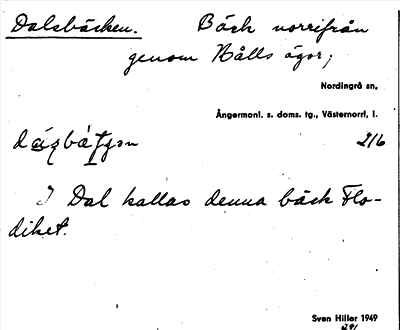 Dalsbäcken. Bäck norrifrån
genom Bålls ägor;
Nordingrå sn,
Ångermanl. s. doms. tg., Västernorrl. l.
2/6
I Dal kallas denna bäck Flo-
diket.
Sven Hiller 1949